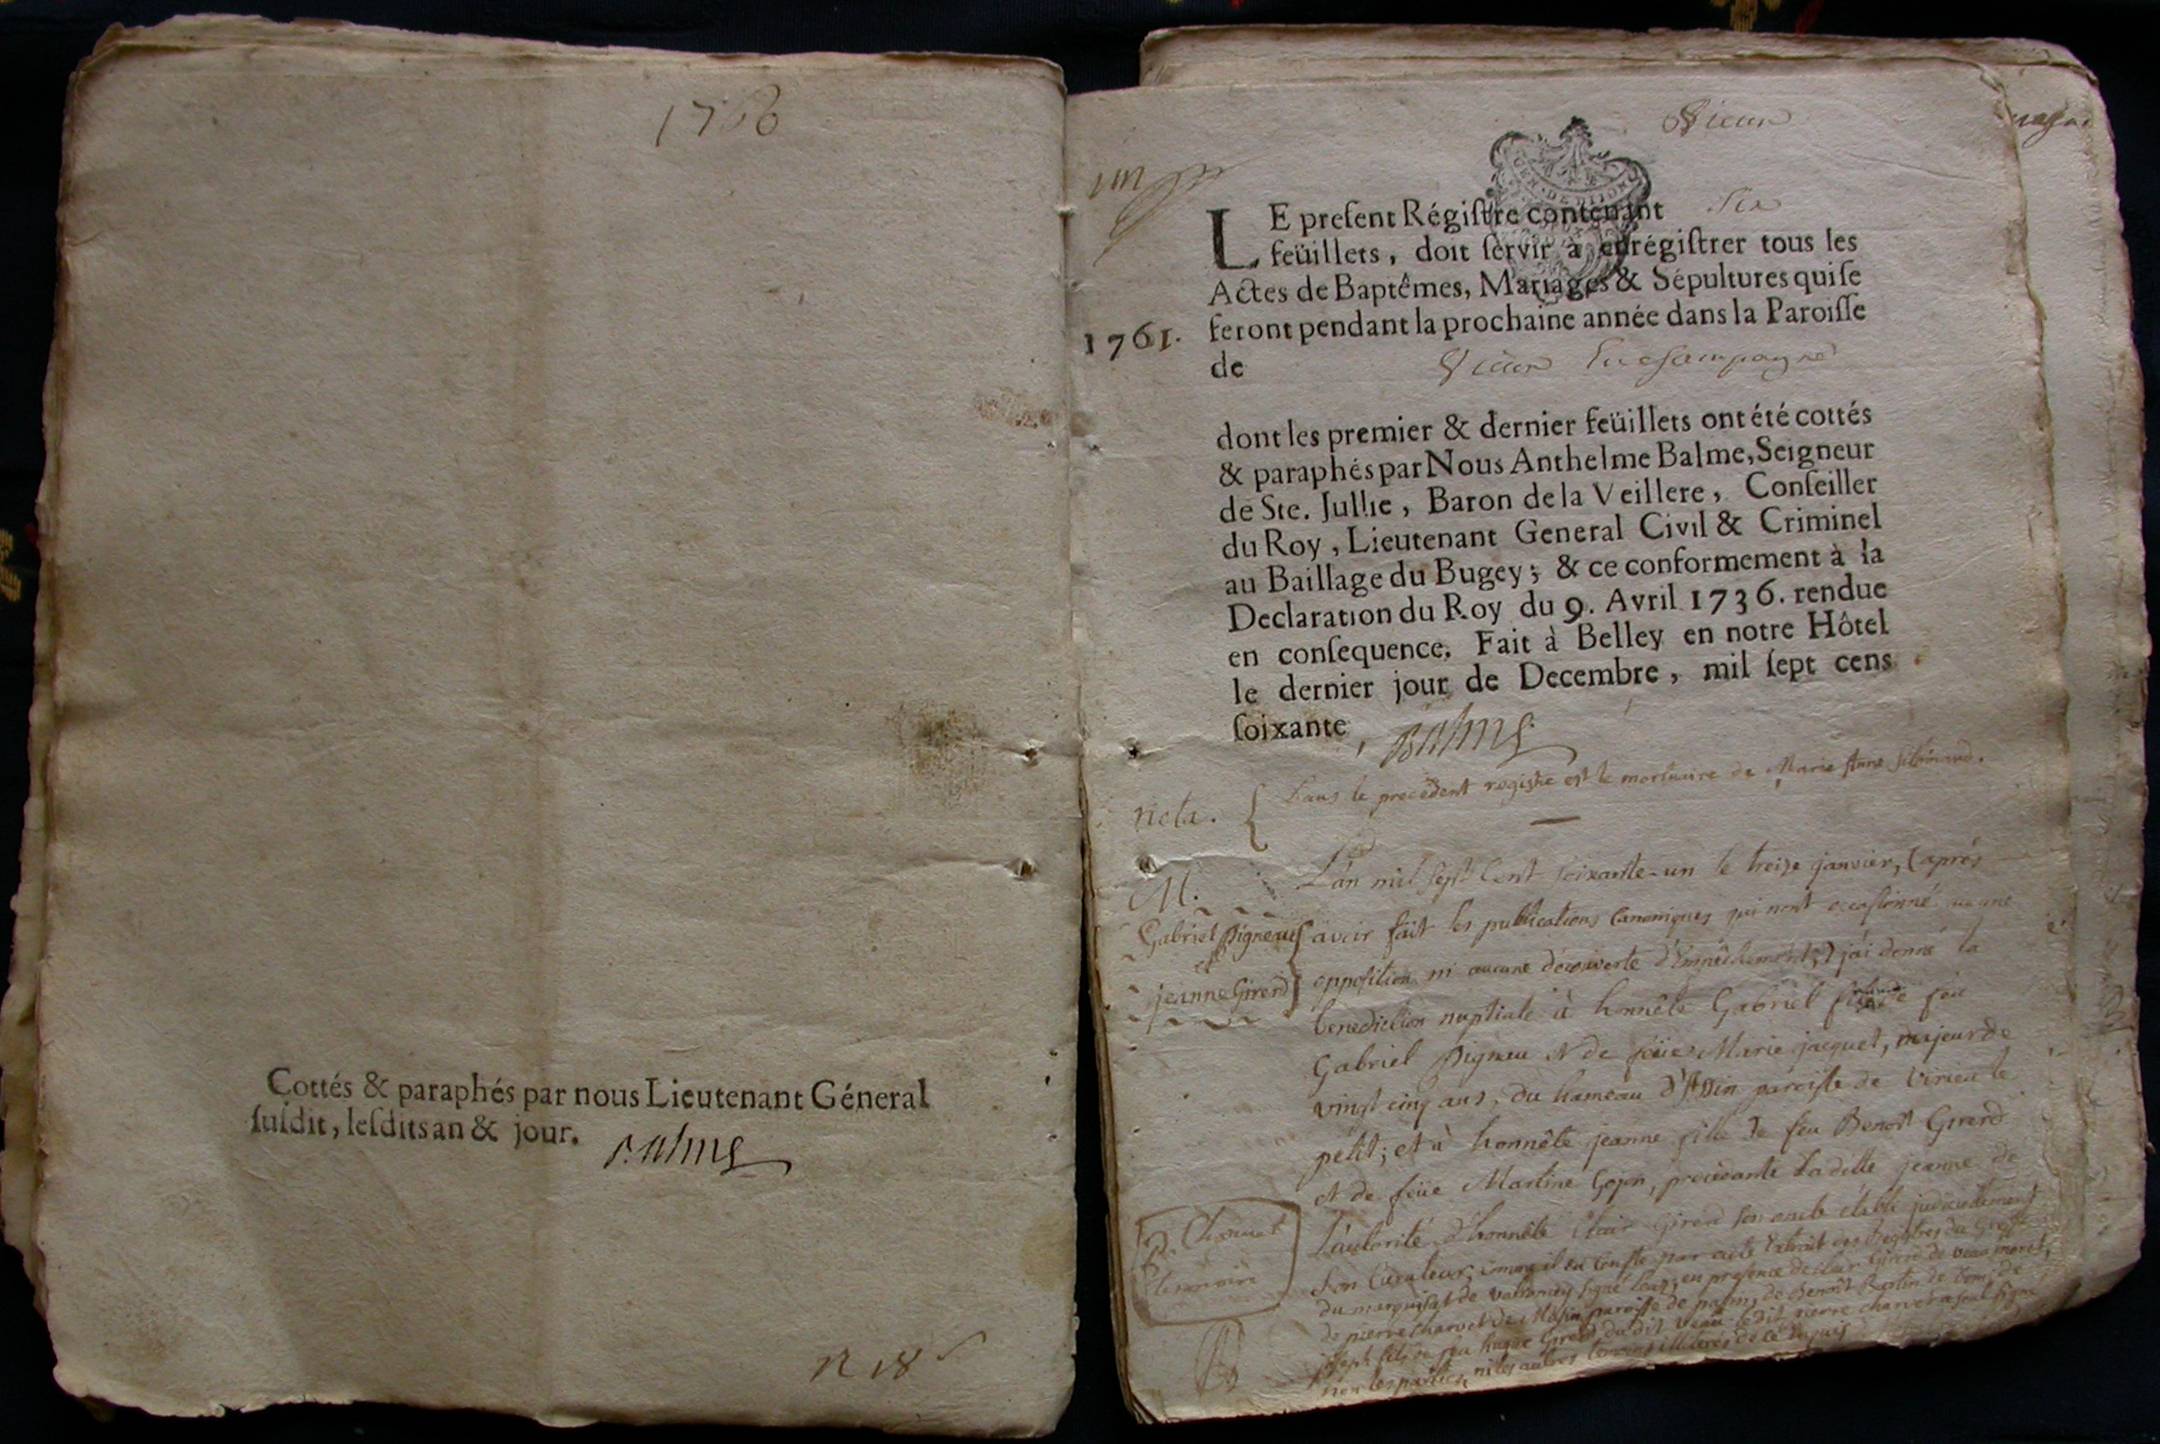 1766
Cottés & paraphés par nous Lieutenant Géneral
ſuſdit, leſdits an & jour.
Balme
n 18
Vieux
un
LE preſent Régiſtre contenant Six
feüillets, doit ſervir à enrégiſtrer tous les
Actes de Baptêmes, Mariages & Sépultures qui ſe
1761. feront pendant la prochaine année dans la Paroiſſe
de Vieux En champagne
dont les premier & dernier feüillets ont été cottés
& paraphés par Nous Anthelme Balme, Seigneur
de Ste. Jullie, Baron de la Veillere, Conſeiller
du Roy, Lieutenant General Civil & Criminel
au Baillage du Bugey; & ce conformement à la
Declaration du Roy du 9. Avril 1736. rendue
en conſequence. Fait à Belley en notre Hôtel
le dernier jour de Decembre, mil ſept cens
ſoixante, Balme
nota. { Dans le precedent registre est le mortuaire de Marie Anne
M.
Gabriel Pigneux
et
jeanne Girerd
L'an mil sept cent soixante-un le treize janvier, (après
avoir fait les publications canoniques qui n'ont occasionné aucune
opposition ni aucune découverte d'Empêchement,) j'ai donné la
benediction nuptiale à honnête Gabriel feu
Gabriel Pigneu et de feüe Marie jacquet, majeur de
vingt cinq ans, du hameau d' paroisse de virieu le
petit; et à honnête jeanne fille de feu Benoît Girerd
et de feüe Martine Gojon, procédante Ladite jeanne de
L'autorité d'honnête Girerd son oncle établi judiciellement
son Curateur, comme il en Conste par acte Extrait des Registres du Greffe
du marquisat de valromey signé en presence de Girerd de
de pierre charvet de paroisse de de Benoît de
joseph fils de feu hugue Girerd du dit ledit pierre charvet a seul signé
non les parties, ni les autres temoins illiterés de ce requis
P. Charvet